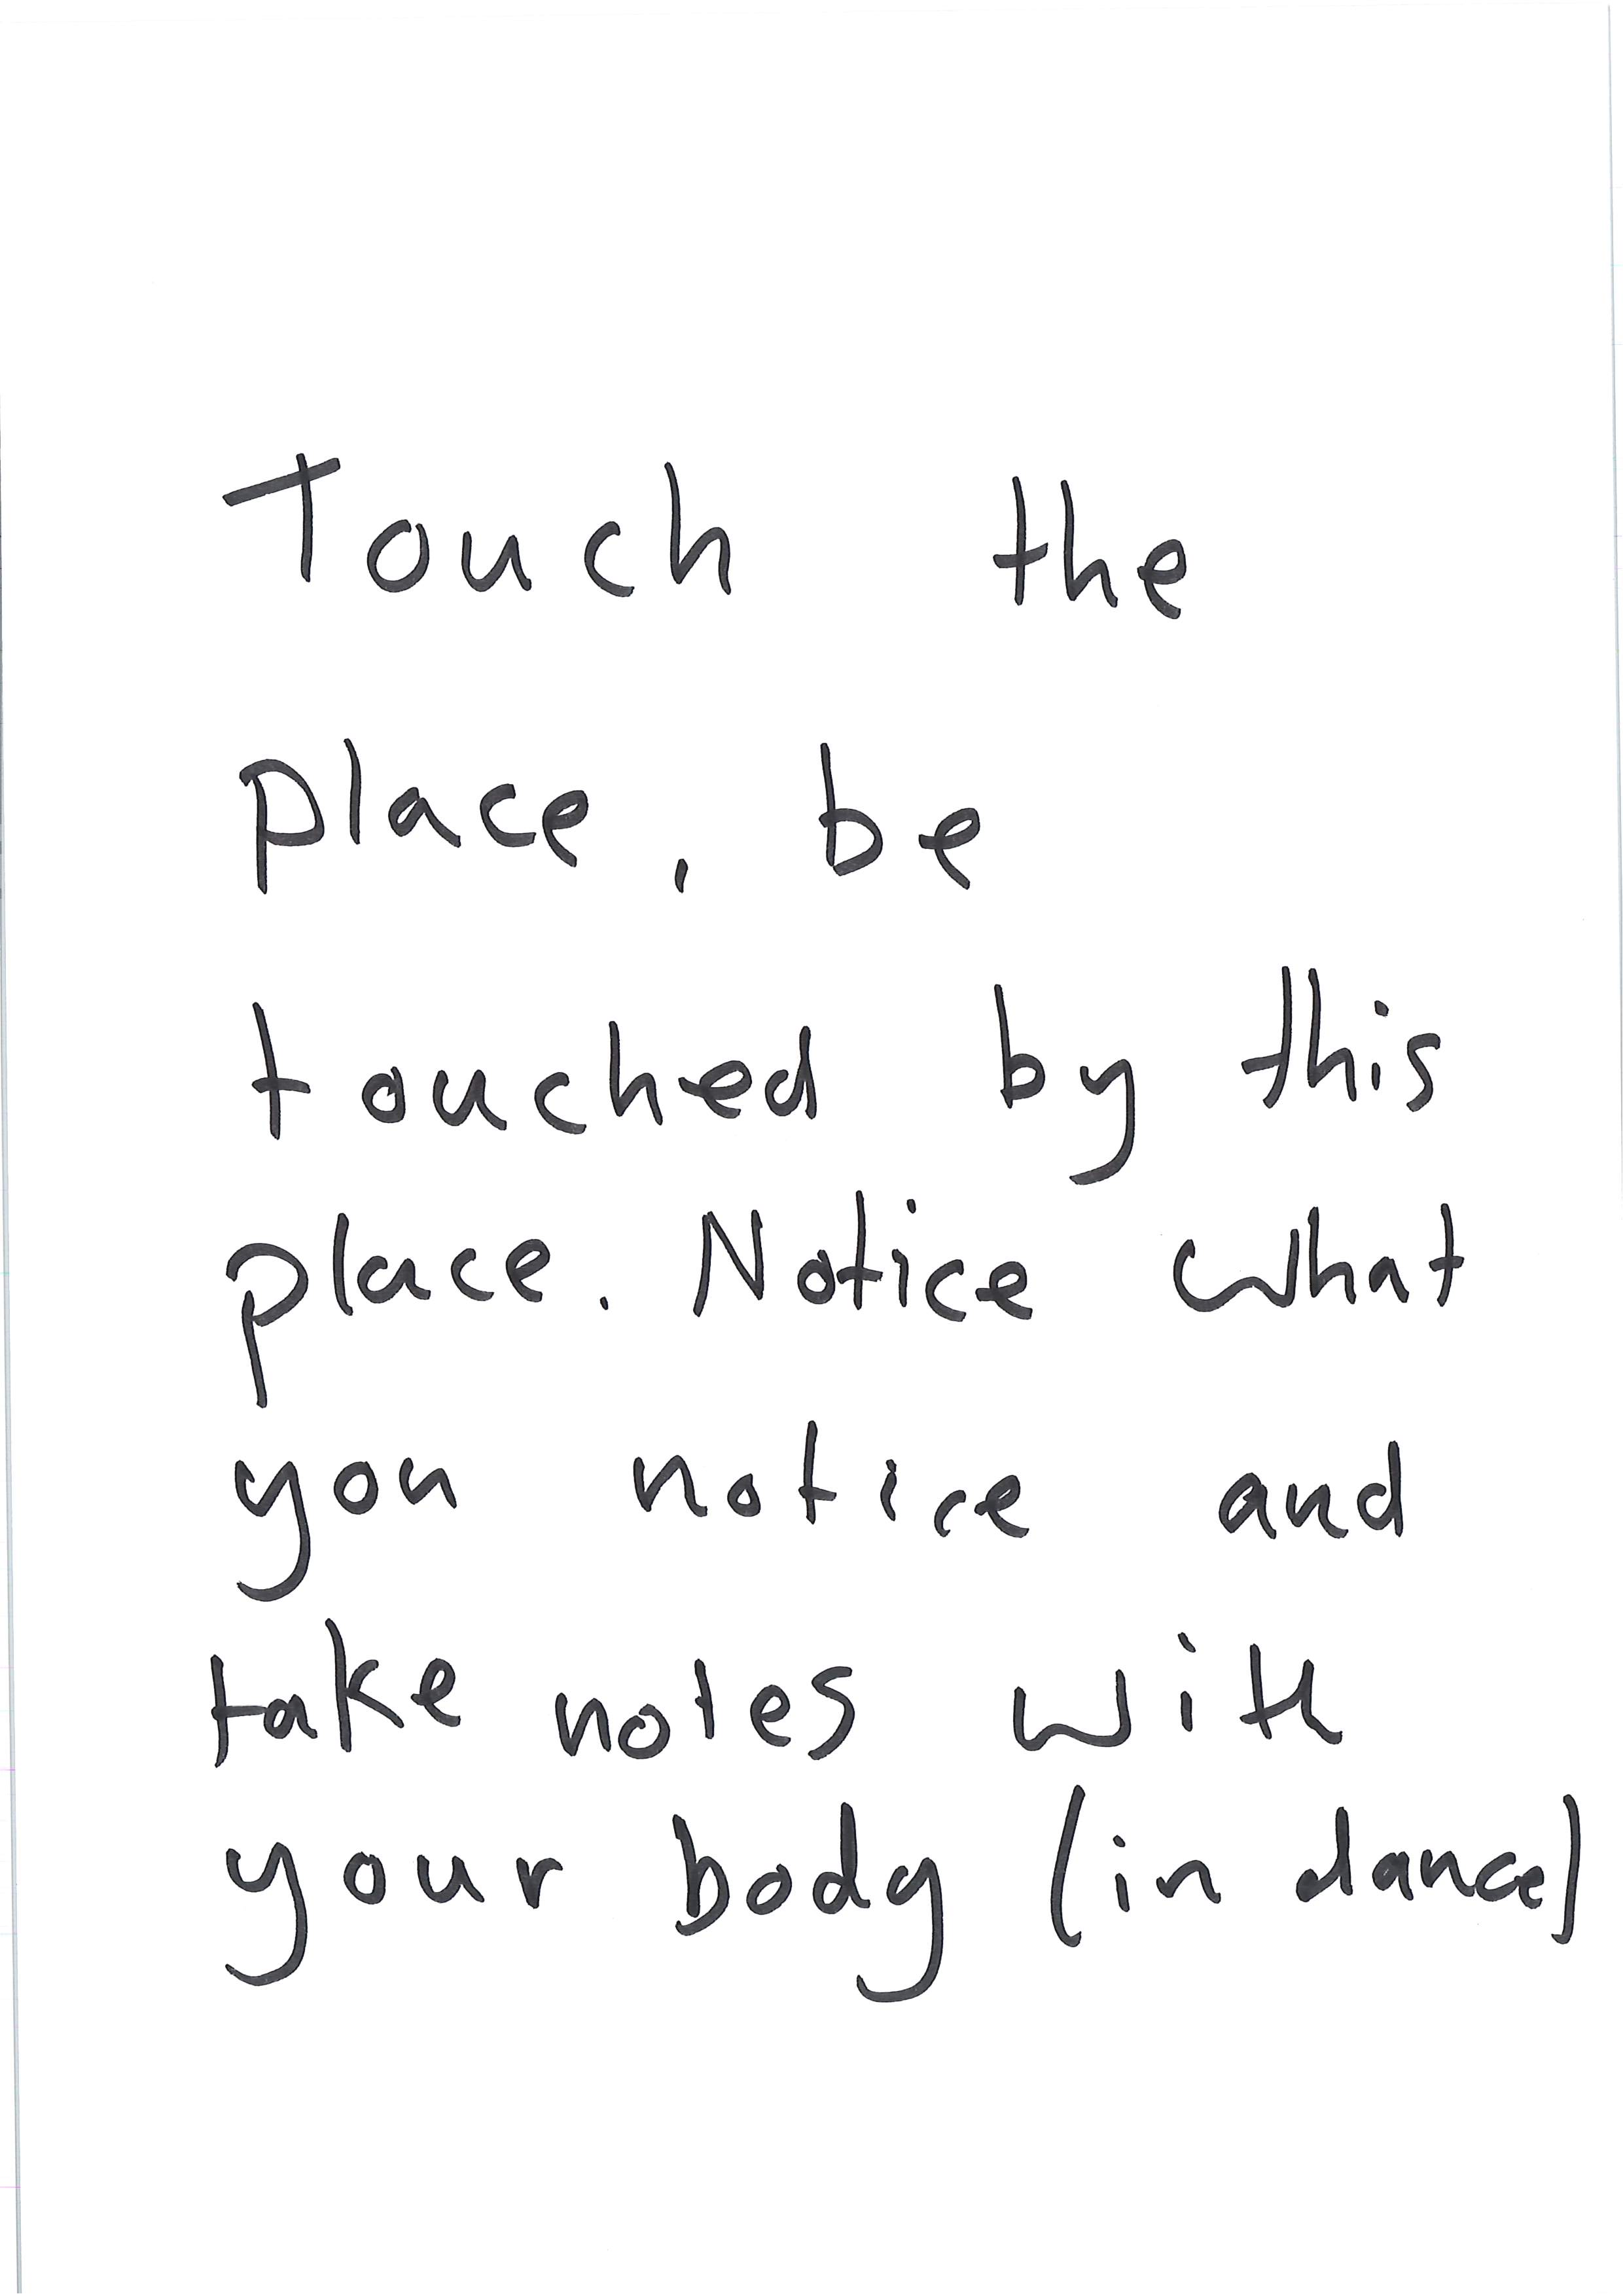 Touch the
place, be
touched by this
place. Notice what
you notice and
take notes with
your body (in dance)